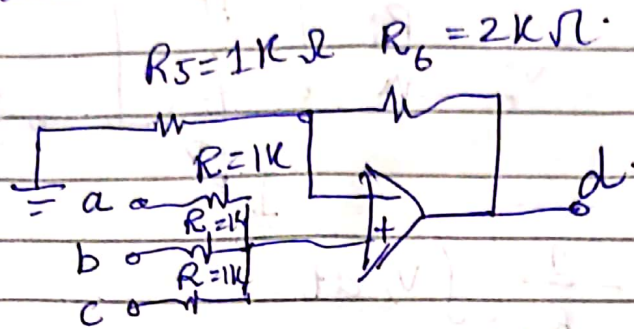 R5=1KΩ R6=2KΩ.
R=1K
a
R=1K
b
R=1K
c
+
d.